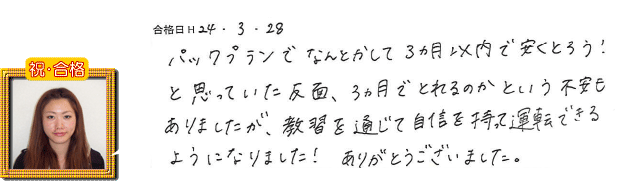 祝・合格
合格日 H 24・3・28
パックプランでなんとかして3ヵ月以内で安くとろう！
と思っていた反面、3ヵ月でとれるのかという不安も
ありましたが、教習を通じて自信を持って運転できる
ようになりました！ ありがとうございました。